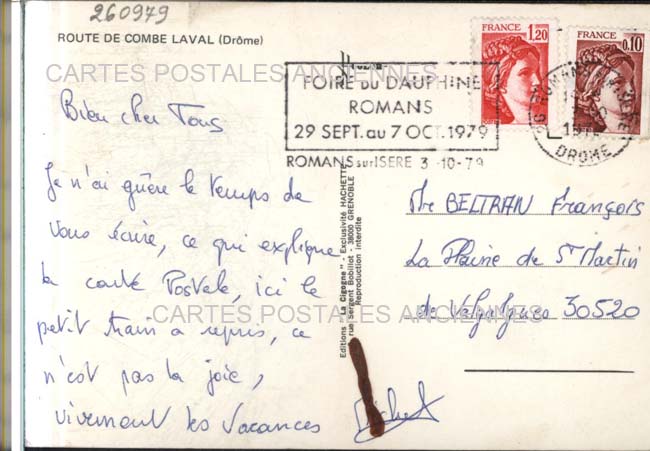 260979
ROUTE DE COMBE LAVAL (Drôme)
CARTES POSTALES ANCIENNES
FRANCE 1,20
FRANCE 0,10
FOIRE DU DAUPHINE
ROMANS
29 SEPT. au 7 OCT. 1979
ROMANS sur ISERE 3-10-79
DROME
Bien cher Tous
Je n'ai guère le temps de
vous écrire, ce qui explique
la carte Postale, ici le
petit train a repris, ce
n'est pas la joie,
vivement les vacances
Michel
Editions "La Cigogne" - Exclusivité HACHETTE
rue Sergent Bobillot - 38000 GRENOBLE
Reproduction interdite
Mr BELTRAN François
La Plaine de St Martin
de Valgalgues 30520
CARTES POSTALES ANCIENNES